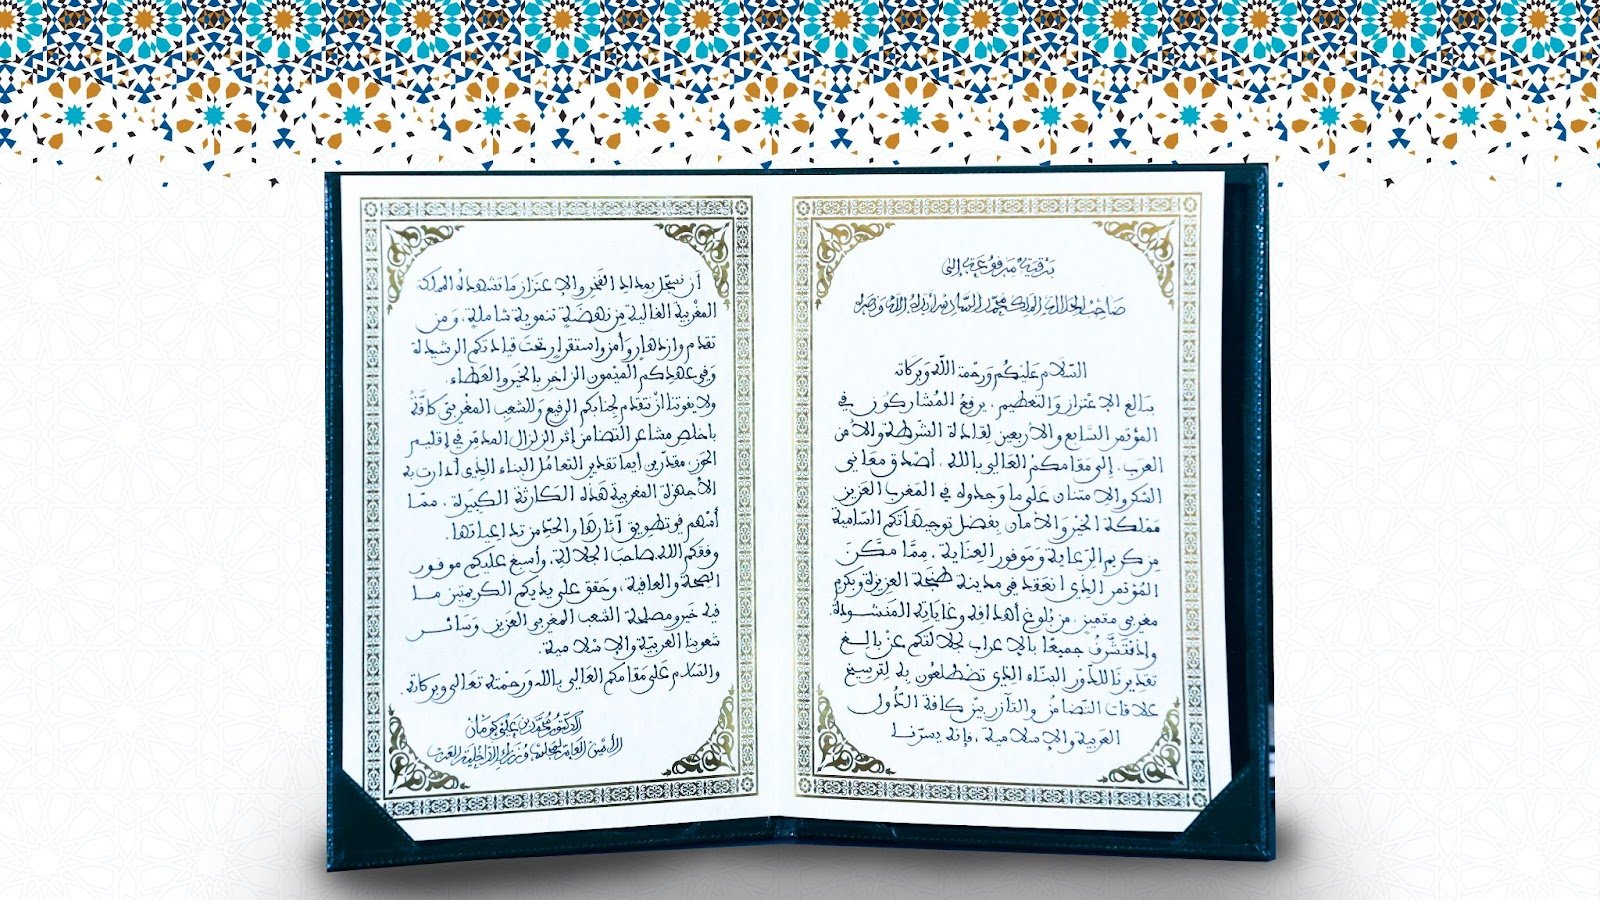 برقية مرفوعة إلى
صاحب الجلالة الملك محمد السادس أيده الله ونصره
السّلام عليكم ورحمة الله وبركاته
ببالغ الاعتزاز والتعظيم، يرفع المشاركون في
المؤتمر السّابع والأربعين لقادة الشّرطة والأمن
العرب، إلى مقامكم العالي بالله، أصدق معاني
الشكر والامتنان على ما وجدوه في المغرب العزيز
مملكة الخير والأمان بفضل توجيهاتكم السّامية
من كريم الرّعاية وموفور العناية، ممّا مكّن
المؤتمر الذي انعقد في مدينة طنجة العزيزة وبكرم
مغربي متميز، من بلوغ أهدافه وغاياته المنشودة.
وإذ نتشرّف جميعًا بالإعراب لجلالتكم عن بالغ
تقديرنا للدّور البنّاء الذي تضطلعون به لترسيخ
علاقات التّضامن والتآزر بين كافة الدّول
العربية والإسلامية، فإنه يسرّنا
أن نسجّل بمداد الفخر والاعتزاز ما تشهده المملكة
المغربية الغالية من نهضة تنموية شاملة، ومن
تقدم وازدهار وأمن واستقرار تحت قيادتكم الرشيدة
وفي عهدكم الميمون الزاخر بالخير والعطاء.
ولا يفوتنا أن نتقدم لجنابكم الرفيع وللشعب المغربي كافة
بأخلص مشاعر التضامن إثر الزلزال المدمّر في إقليم
الحوز، مقدّرين أيما تقدير التعامل البناء الذي أدارت به
الأجهزة المغربية هذه الكارثة الكبيرة، ممّا
أسهم في تطويق آثارها والحدّ من تداعياتها.
وفقكم الله صاحب الجلالة، وأسبغ عليكم موفور
الصحة والعافية، وحقق على يديكم الكريمتين ما
فيه خير ومصلحة الشعب المغربي العزيز وسائر
شعوبنا العربيّة والإسلامية.
والسّلام على مقامكم العالي بالله ورحمته تعالى وبركاته.
الدّكتور محمّد بن علي كومان
الأمين العام لمجلس وزراء الداخلية العرب